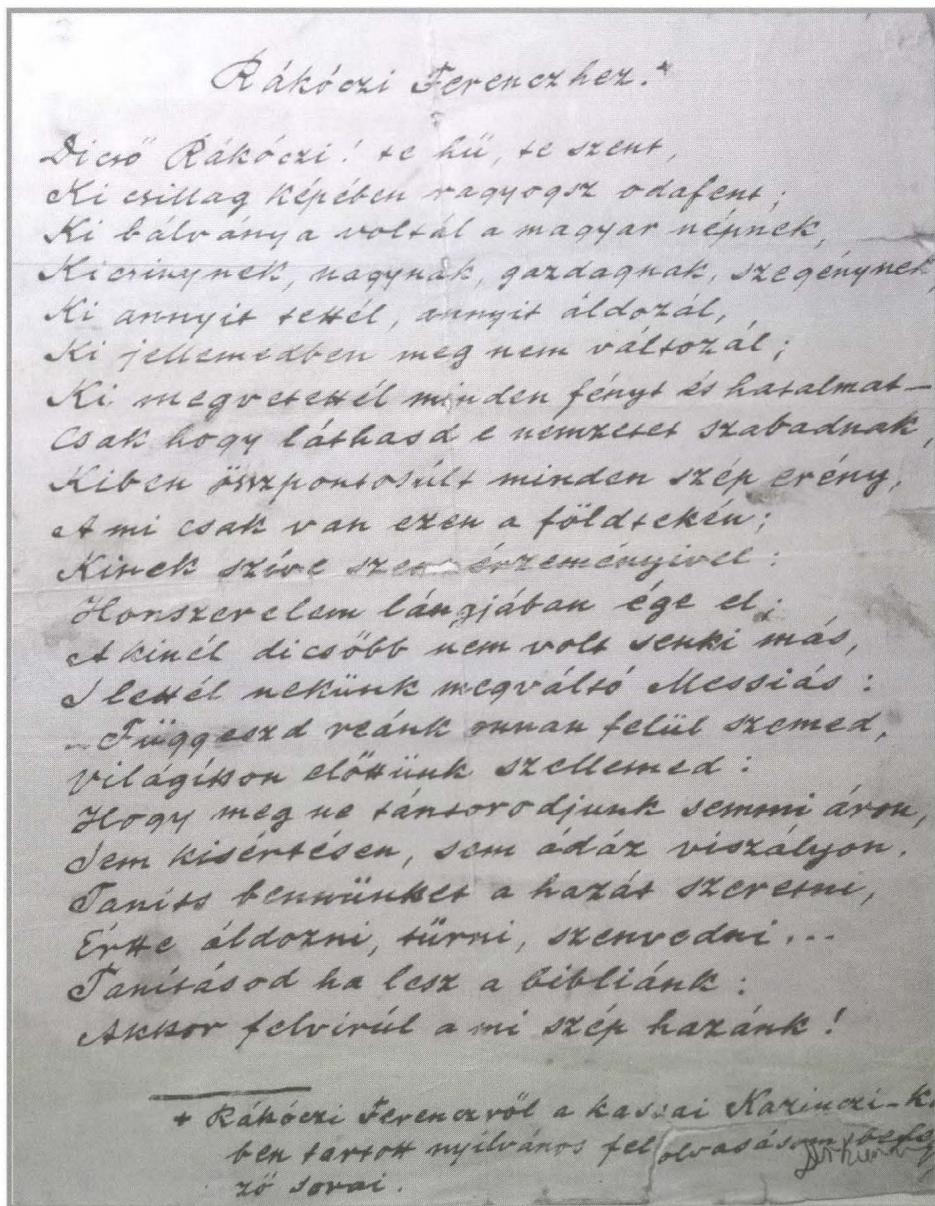 Rákóczi Ferenczhez.*
Dicső Rákóczi! te hű, te szent,
Ki csillag képében ragyogsz odafent;
Ki bálványa voltál a magyar népnek,
Kicsinynek, nagynak, gazdagnak, szegénynek,
Ki annyit tettél, annyit áldozál,
Ki jellemedben meg nem változál;
Ki megvetettél minden fényt és hatalmat –
Csak hogy láthasd e nemzetet szabadnak,
Kiben összpontosúlt minden szép erény,
A mi csak van ezen a földtekén;
Kinek szíve érzeményivel:
Honszerelem lángjában ége el;
A kinél dicsőbb nem volt senki más,
S lettél nekünk megváltó Messiás:
– Függeszd reánk onnan felül szemed,
Világítson előttünk szellemed:
Hogy meg ne tántorodjunk semmi áron,
Sem kisértésen, sem ádáz viszályon.
Taníts bennünket a hazát szeretni,
Értte áldozni, tűrni, szenvedni...
Tanításod ha lesz a bibliánk:
Akkor felvirúl a mi szép hazánk!
* Rákóczi Ferenczről a kassai Kazinczi-k
ben tartott nyilvános felolvasásom
ző sorai.